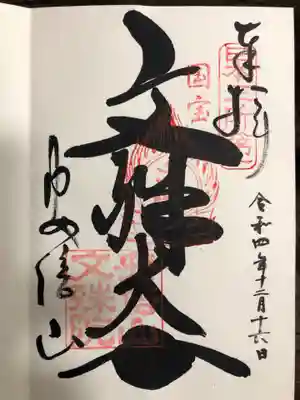 奉拝
令和四年十二月十六日
国宝
文殊大士
文殊院
安倍山